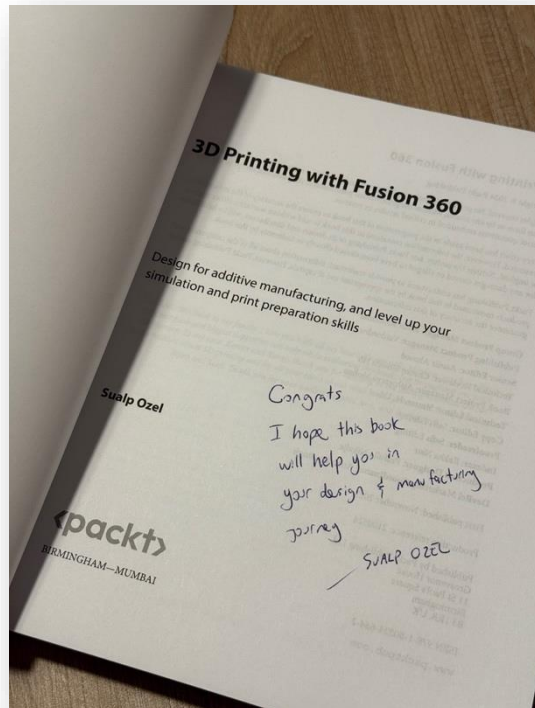 3D Printing with Fusion 360
Design for additive manufacturing, and level up your
simulation and print preparation skills
Sualp Ozel
Congrats
I hope this book
will help you in
your design & manufacturing
journey
SUALP OZEL
<packt>
BIRMINGHAM—MUMBAI